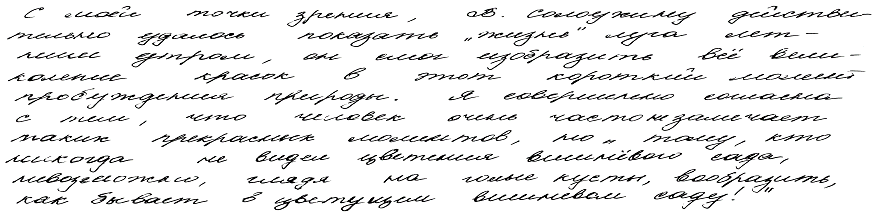 С моей точки зрения, В. Солоухину действи-
тельно удалось показать „жизнь" луга лет-
ним утром, он смог изобразить всё вели-
коление красок в этот короткий момент
пробуждения природы. Я совершенно согласна
с тем, что человек очень часто не замечает
таких прекрасных моментов, но „ тому, кто
никогда не видел цветения вишнёвого сада,
невозможно, глядя на голые кусты, вообразить,
как бывает в цветущем вишнёвом саду!"